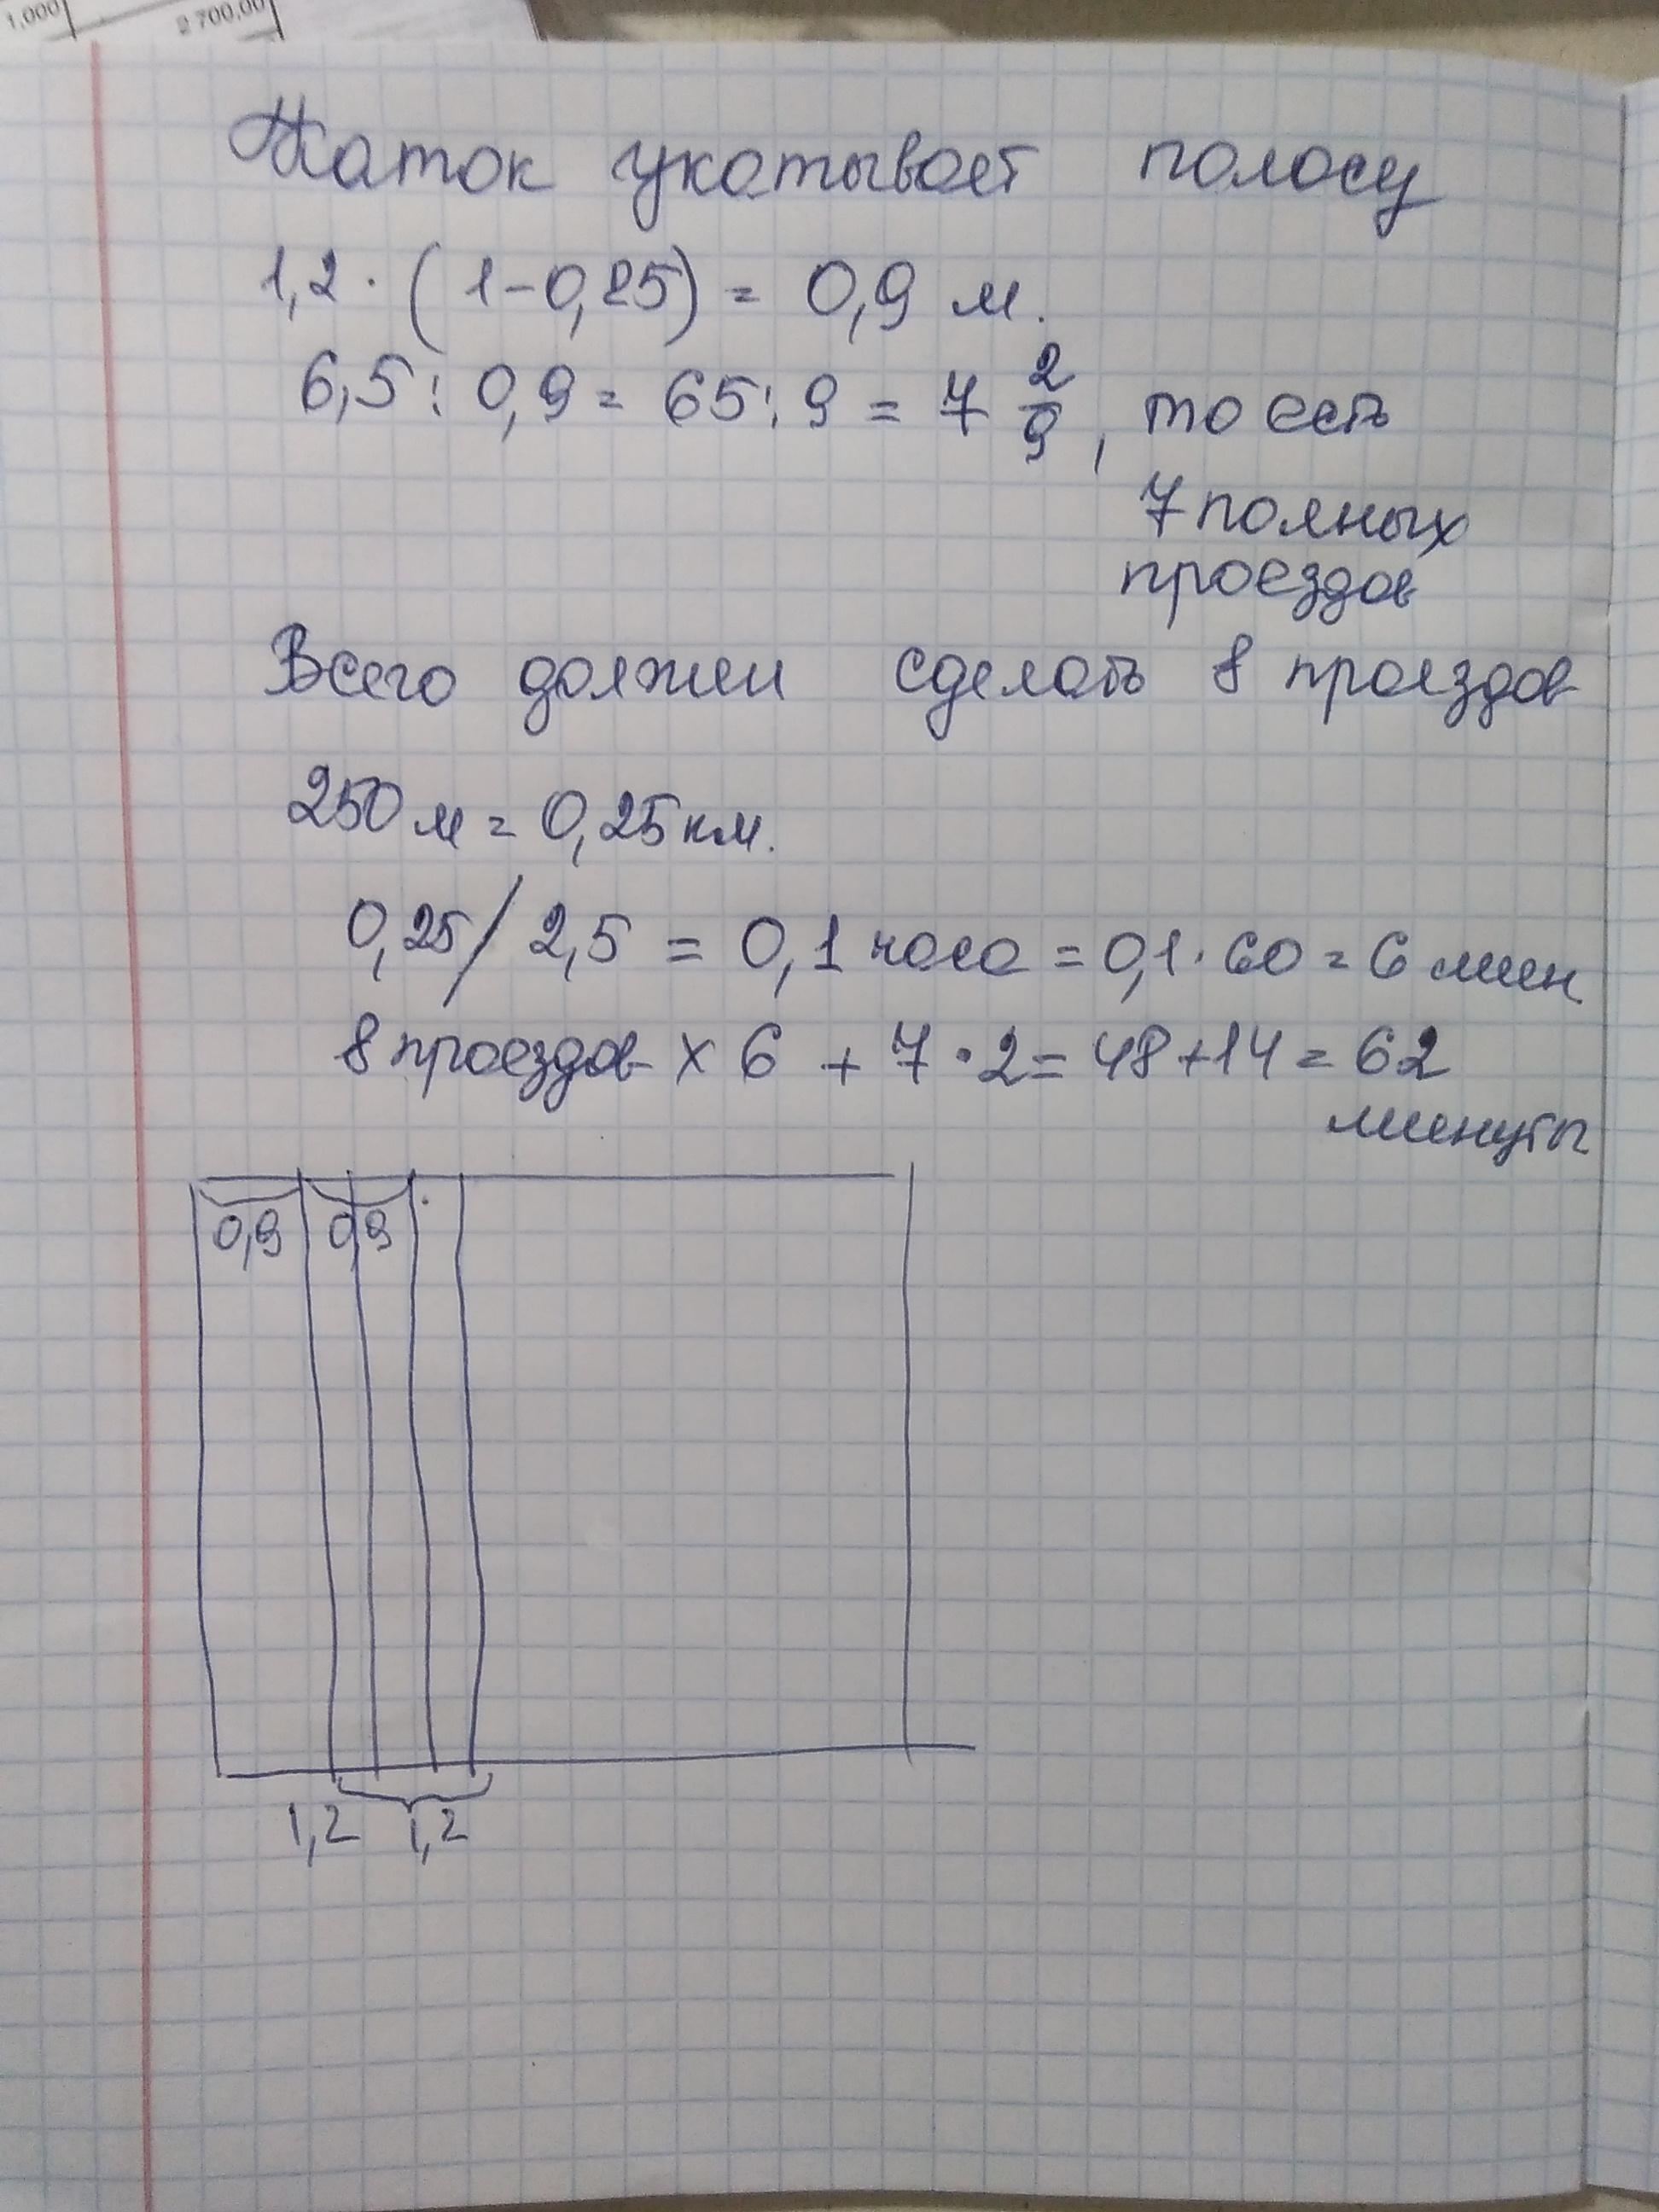 1,000
2 700,00
Каток укатывает полосу
1,2 · (1-0,25) = 0,9 м.
6,5 : 0,9 = 65 : 9 = 7 2/9, то есть
7 полных
проездов
Всего должен сделать 8 проездов
250 м = 0,25 км.
0,25 / 2,5 = 0,1 часа = 0,1 · 60 = 6 мин
8 проездов x 6 + 7 · 2 = 48 + 14 = 62
минуты
0,9 0,9
1,2 1,2